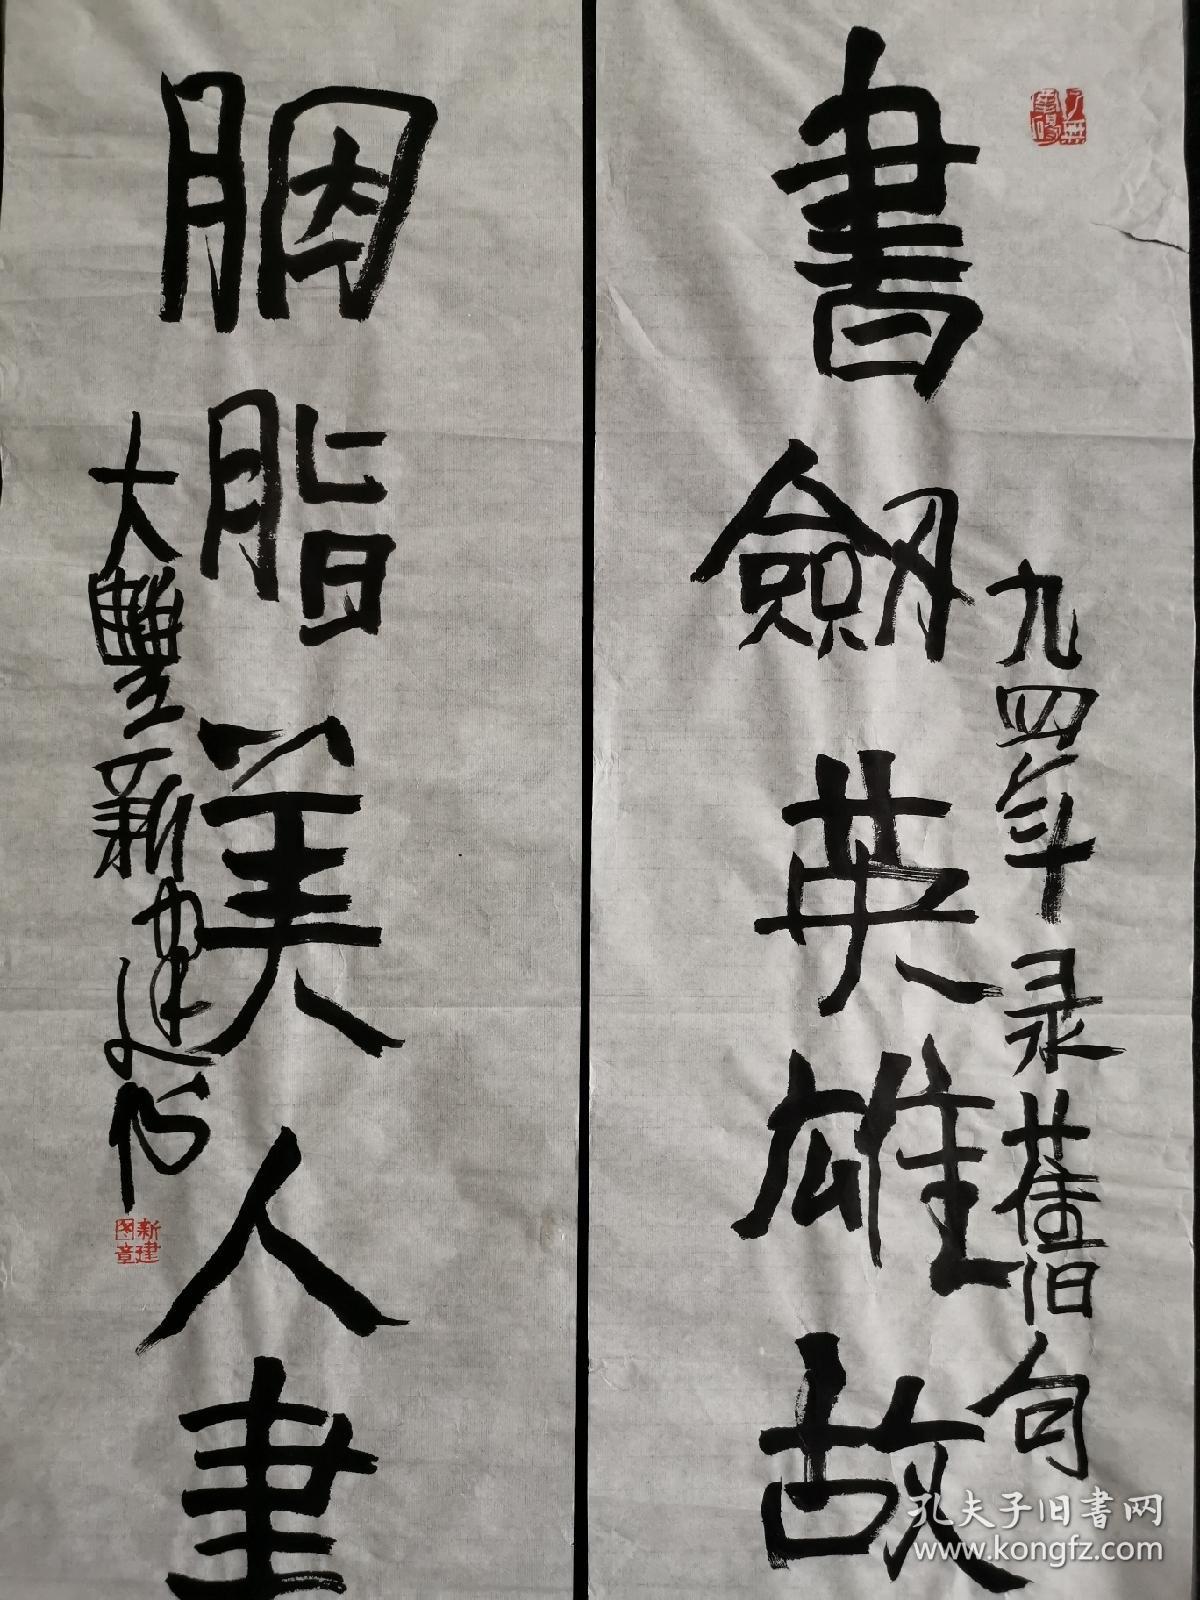 書劔英雄故
九四年录舊句
胭脂美人畫
大豐新建书
新建
图章
孔夫子旧书网
www.kongfz.com